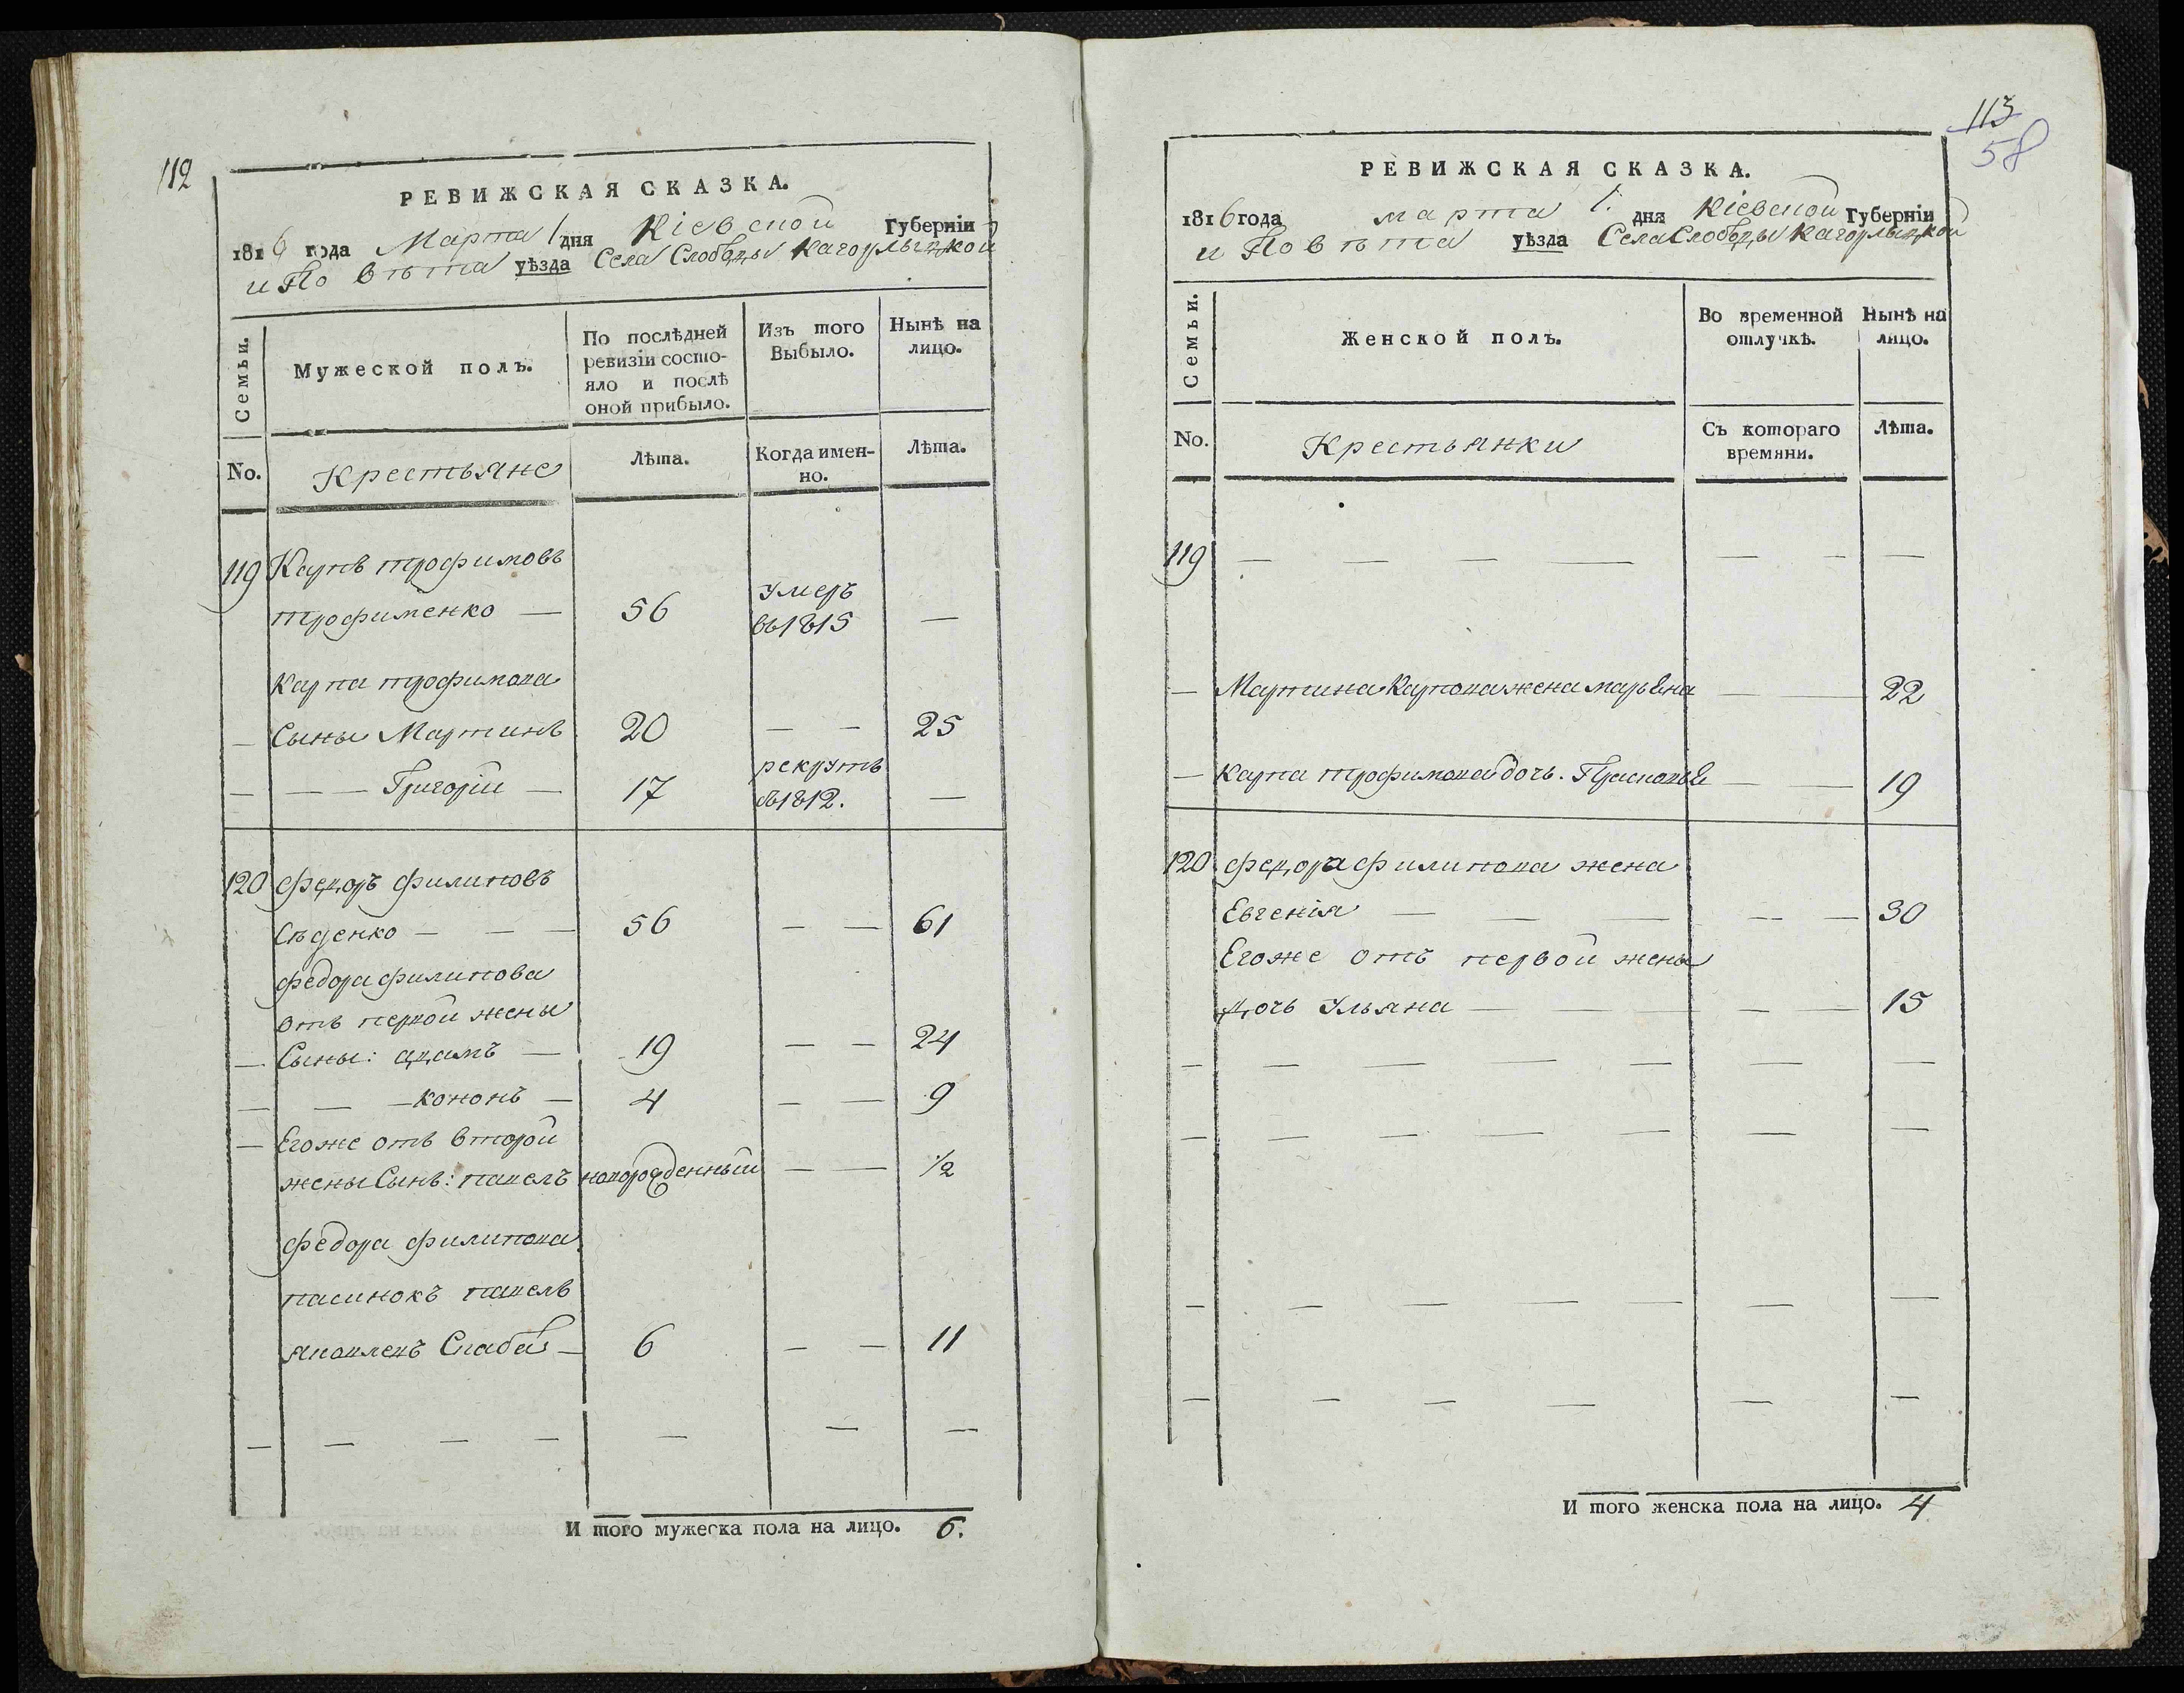 112
РЕВИЖСКАЯ СКАЗКА.
1816 года Марта 1 дня Кіевской Губерніи
и Повѣта уѣзда Села Слободы Кагорлыцкой
Семьи.
Мужеской полъ.
По послѣдней ревизіи состо-
яло и послѣ
оной прибыло.
Изъ того
Выбыло.
Нынѣ на
лицо.
No.
Крестьяне
Лѣта.
Когда имен-
но.
Лѣта.
119 Карпъ трофимовъ
трофименко — 56 умеръ въ 1815 —
Карпа трофимова
— Сыны Мартинъ 20 — — 25
— — — Григорій — 17 рекрутъ въ 1812. —
120 федоръ филиповъ
56 — — 61
федора филипова
отъ первой жены
— Сыны: адамъ — 19 — — 24
— — — кононъ — 4 — — 9
— Егоже отъ второй
жены Сынъ: павелъ новорожденный — — 1/2
федора филипова
пасинокъ павелъ
яковлевъ — 6 — — 11
— — — — — — —
И того мужеска пола на лицо. 6.
113
58
РЕВИЖСКАЯ СКАЗКА.
1816 года марта 1. дня Кіевской Губерніи
и Повѣта уѣзда Села Слободы Кагорлыцкой
Семьи.
Женской полъ.
Во временной
отлучкѣ.
Нынѣ на
лицо.
No.
Крестьянки
Съ котораго
времяни.
Лѣта.
119 — — — — — — —
— Мартина Карпова жена марьяна — — 22
— Карпа трофимова дочь. Прасковья — — 19
120 федора филипова жена
Евгенія — — — — — 30
Егоже отъ первой жены
дочь Ульяна — — — — — 15
— — — — — —
— — — — — — —
— — — — — — —
— — — — — —
И того женска пола на лицо. 4